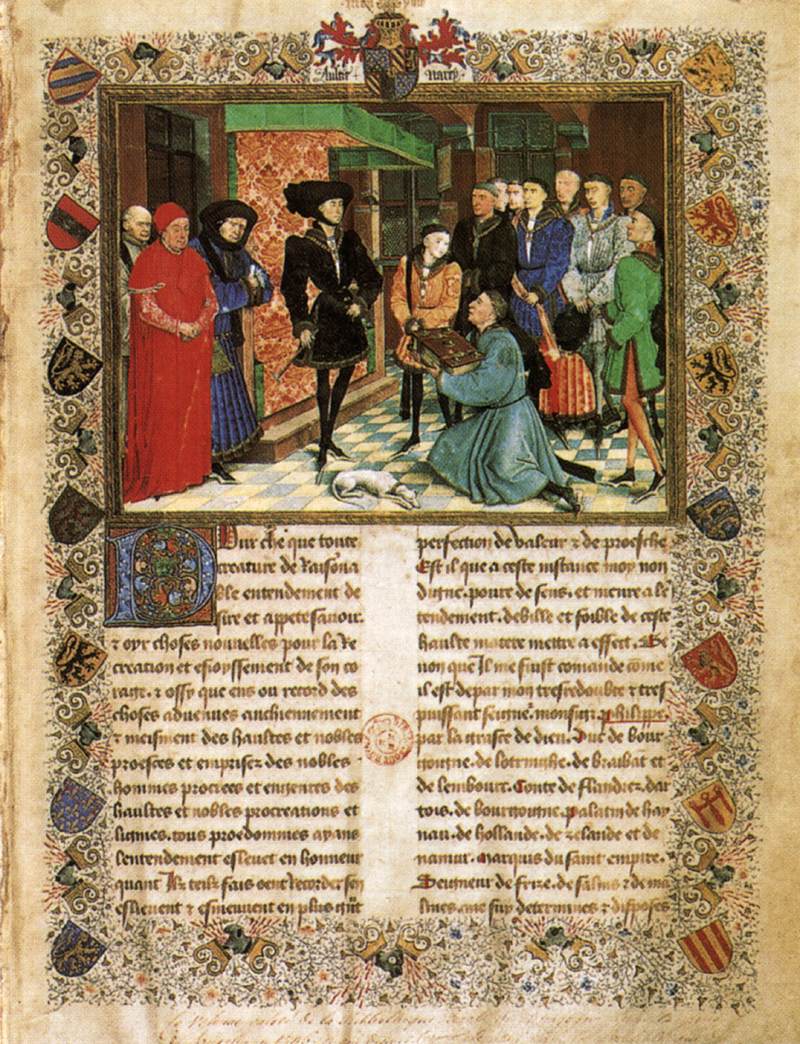 Aultre
Narey
Pour che que toute
creature de Raisona
ble entendement de
sire et appete savoir
⁊ oyr choses nouvelles pour la Re
creation et esioyssement de son co
rage. ⁊ ossy que ens ou record des
choses advenues anchiennement
⁊ meisment des haultes et nobles
proesces et emprises des nobles
hommes procrees et engenres des
haultes et nobles procreations et
lignies. tous proedommes ayans
lentendement esleuet en honneur
quant Ilz telz fais oent Recorder sen
eslieuent ⁊ esmeuuent en plus grāt
perfection de valeur ⁊ de proesche
Est il que a ceste instance moy non
digne. poure de sens. et menre de
tendement. debille et foible de ceste
haulte matere mettre a effect. Se
non que Il me fuist comandé come
il est de par mon tresredoubté ⁊ tres
puissant seignr. monsigr. phelippe
par la grasce de dieu. Duc de bour
gongne. de lotringhe. de braibat et
de lembourc. Conte de flandres. dar
tois. de bourgongne. palatin de hay
nau. de hollande. de zelande et de
namur. marquis du saint empire.
Seigneur de frize. de salins ⁊ de ma
lines. me suy determines ⁊ disposes